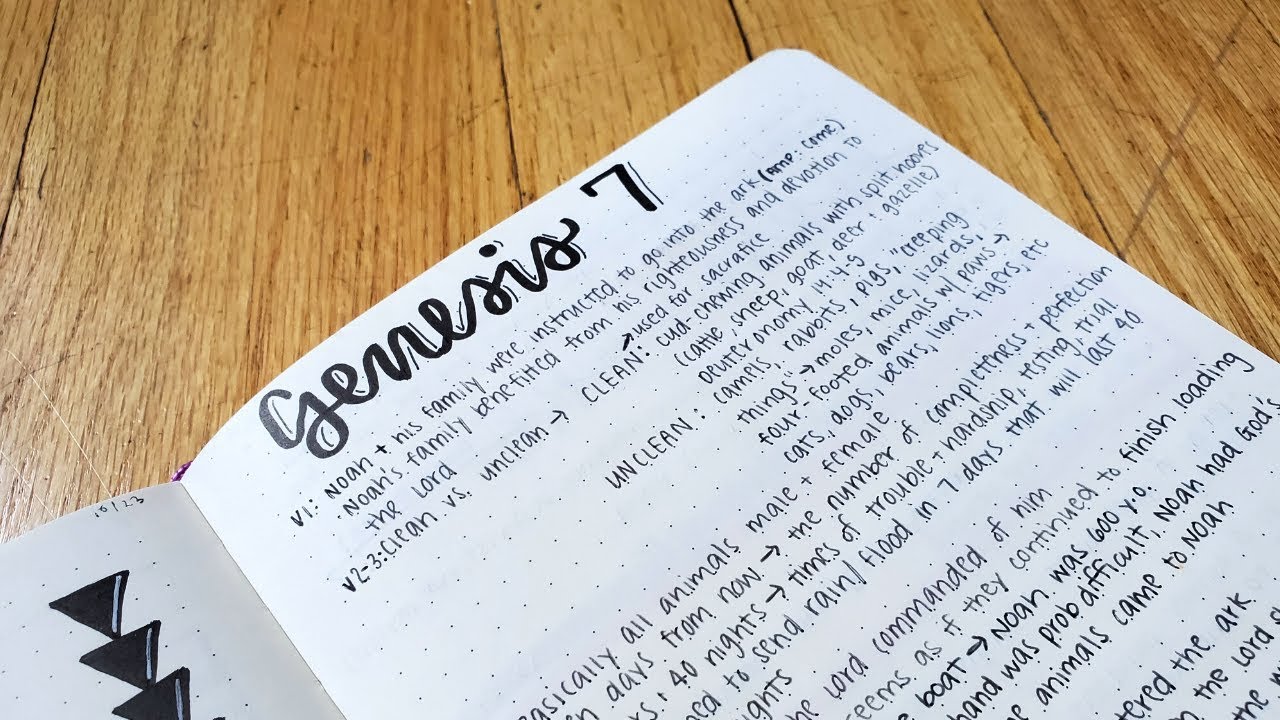 10/23
Genesis 7
v1: Noah + his family were instructed to go into the ark (AMP: come)
. Noah's family benefitted from his righteousness and devotion to
the Lord
v2-3: Clean vs. unclean → CLEAN: cud-chewing animals with split hooves
→ used for sacrafice
(cattle, sheep, goat, deer + gazelle)
Deuteronomy 14:4-5
UNCLEAN: camels, rabbits, pigs, "creeping
things" → moles, mice, lizards,
four-footed animals w/ paws →
cats, dogs, bears, lions, tigers, etc
basically all animals male + female
days from now → the number of completeness + perfection
40 nights → times of trouble + hardship, testing, trial
to send rain/flood in 7 days that will last 40
nights
the Lord commanded of him
seems as if they continued to finish loading
the boat → Noah was 600 y.o.
hand was prob difficult, Noah had God's
animals came to Noah
entered the ark
the Lord